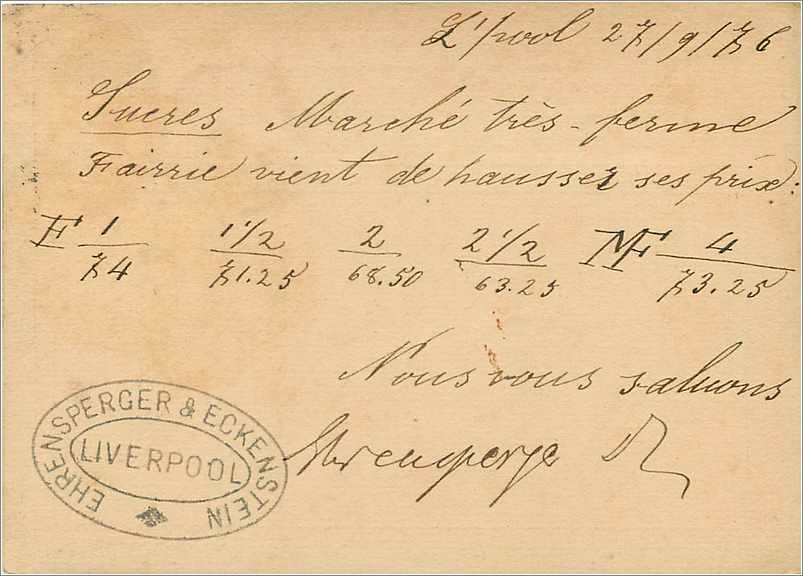 L'pool 27/9/76
Sucres Marché très-ferme
Fairrie vient de hausser ses prix:
F 1/74 1½/71.25 2/68.50 2½/63.25 MF 4/73.25
Nous vous saluons
EHRENSPERGER & ECKENSTEIN
LIVERPOOL